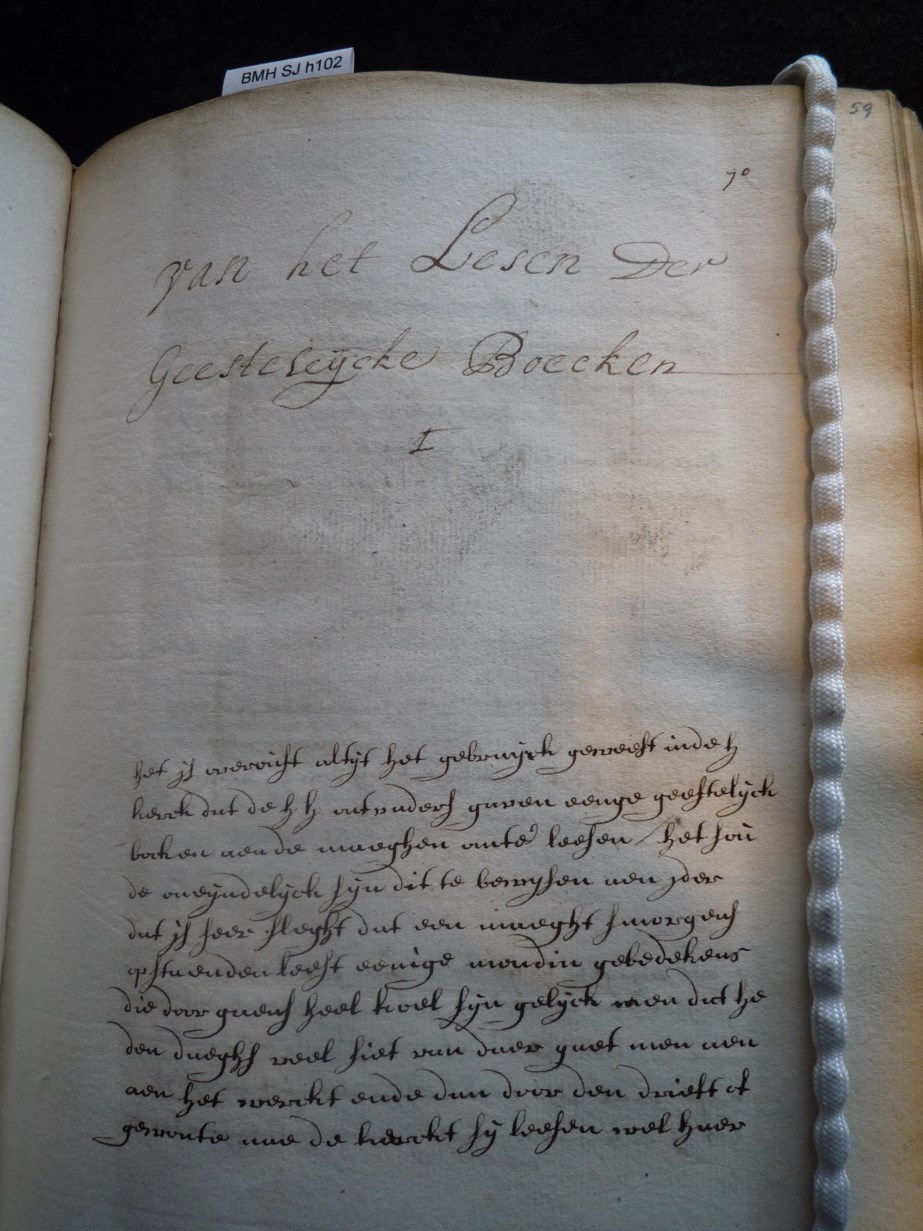 BMH SJ h102
59
7°
Van het Lesen Der
Geesteleycke Boecken
I
het is altijt het gebruijck geweest inde h
kerck dat de h h outvaders gaven eenige geestelijck
boken aen de maeghen om te leesen het sou
de oneyndelijck sijn dit te bewijsen aen jder
dat is seer sleght dat een maeght smorgens
opstaenden leest eenige mondin gebedekens
die door gaens heel koel sijn gelijck men dat he
den daeghs veel siet van daer gaet men aen
aen het werckt ende dan door den drieft of
gewonte nae de kerckt sy leesen wel haer